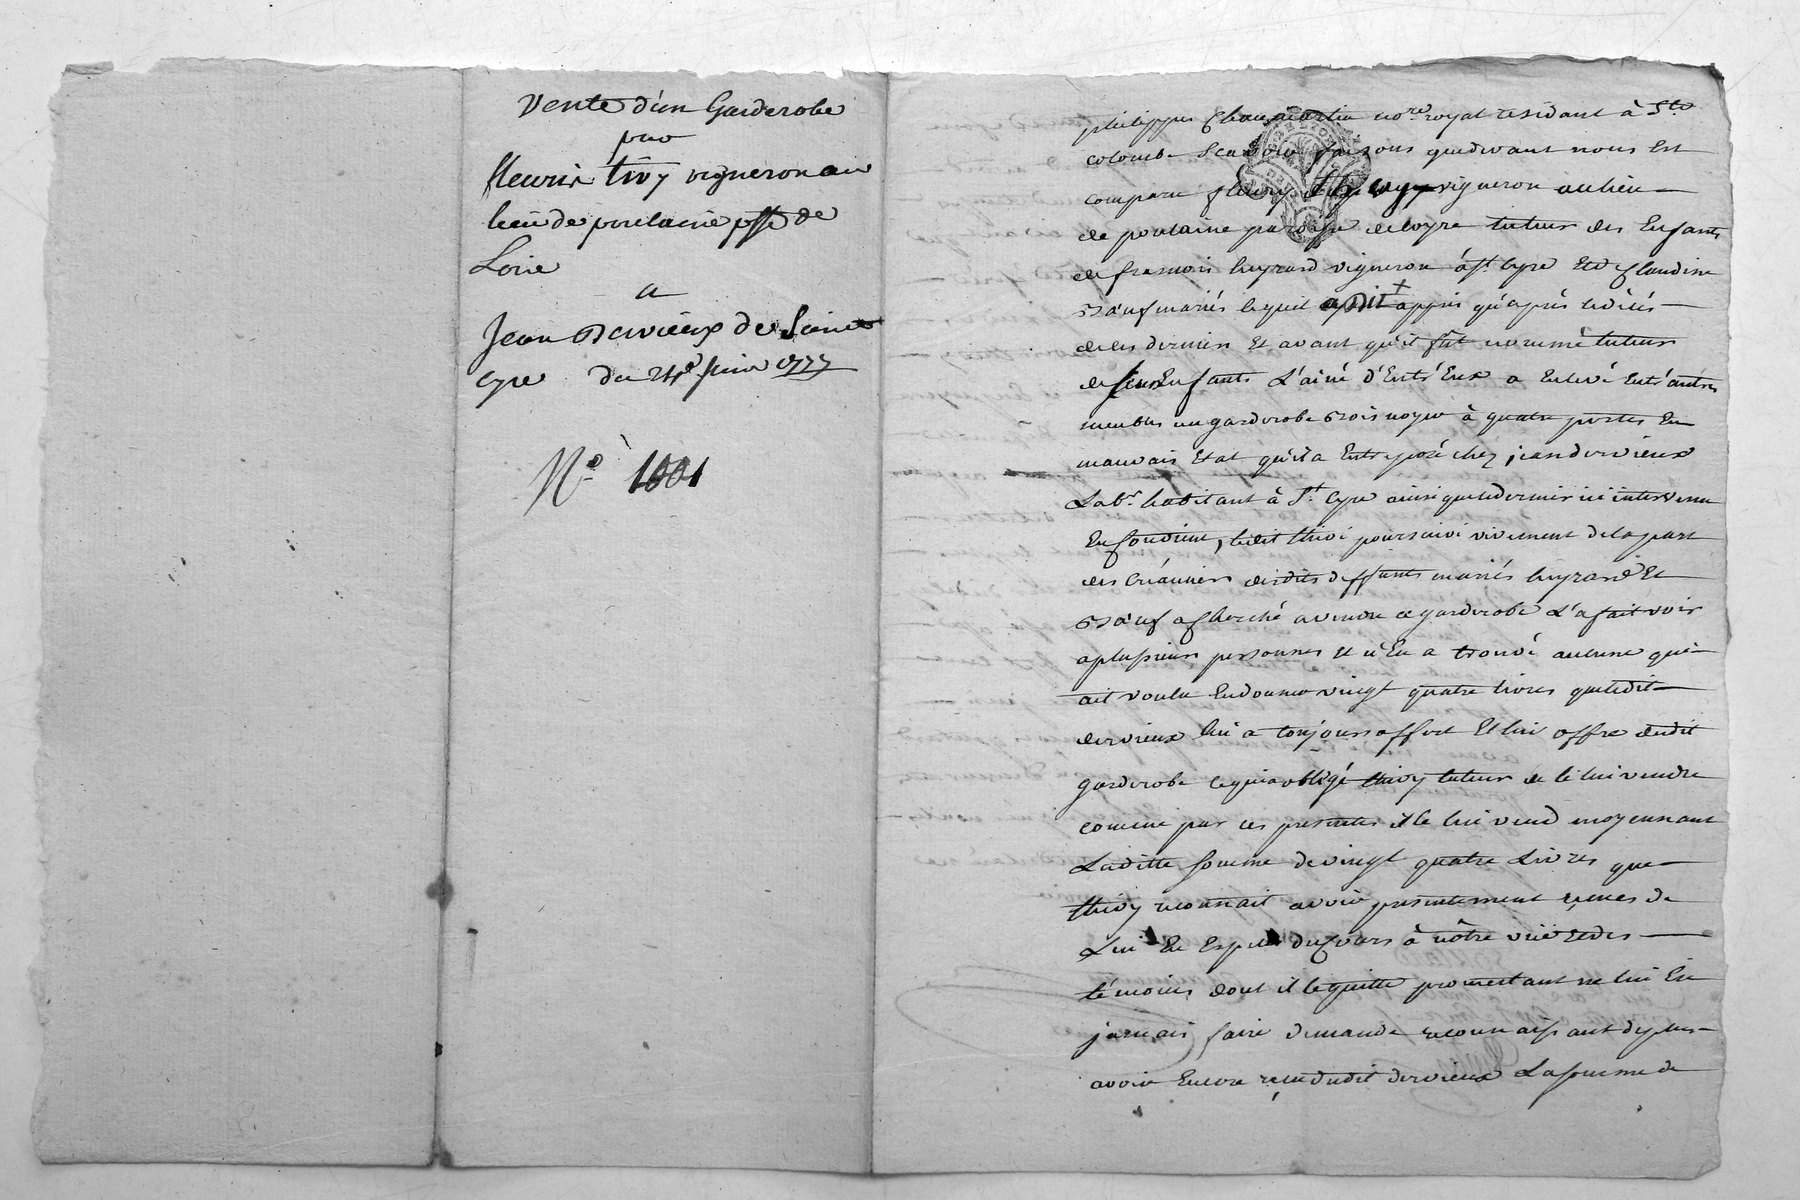 Vente d'un Garderobe
par
fleurie tivy vigneron au
lieu de poulaine psse de
Loire
a
Jean Dervieux de Saint
cyre du 24e juin 1777
No 1001
philippe Chaumartin nore royal residant à Ste
colombe scavoir faisons que devant nous est
comparu fleury thivy vigneron au lieu
de poulaine paroisse de loyre tuteur des Enfants
de francois heyrard vigneron à st Cyre Et Claudine
lequel a dit + appris qu'après le décès
de ces derniers Et avant qu'il fût nommé tuteur
de leurs Enfants L'ainé d'Entr'Eux a Enlevé Entr'autres
meubles un garderobe bois noyer à quatre portes En
mauvais Etat qu'il a Entreposé chez jean dervieux
Labr habitant à St Cyre ainsi que ce dernier ici intervenu
En Convient, ledit thivi poursuivi vivement de la part
des Créanciers desdits deffunts mariés heyrard Et
a Cherché a vendre ce garderobe L'a fait voir
a plusieurs personnes Et n'En a trouvé aucune qui
ait voulu En donner vingt quatre livres que ledit
dervieux lui a toujours offert Et lui offre dudit
garderobe ce qui a obligé thivy tuteur de le lui vendre
comme par ces presentes il le lui vend moyennant
Laditte somme de vingt quatre Livres que
thivy reconnait avoir presentement reçues de
Lui En Especes du Cours à nôtre vüe Et des
témoins dont il le quitte promettant ne lui En
jamais faire demande reconnaissant de plus
avoir Encore reçu dudit dervieux La somme de